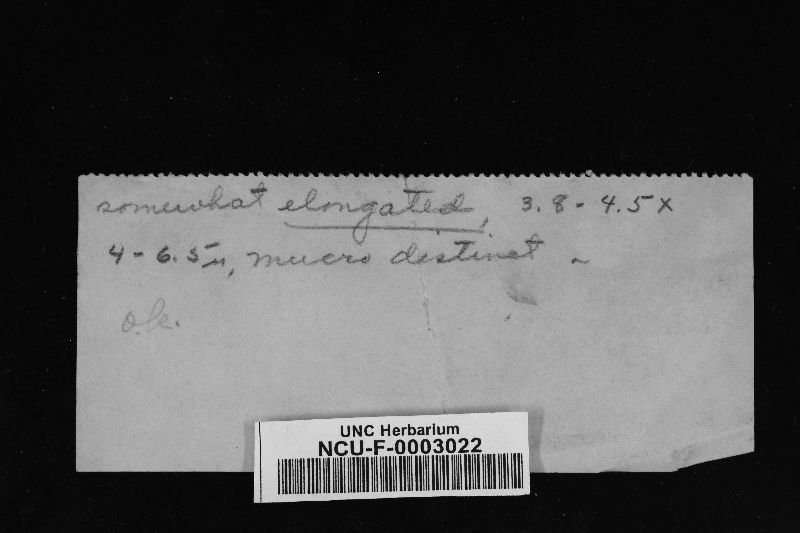 somewhat elongated, 3.8 - 4.5 x
4 - 6.5 µ, mucro distinct ~
o.k.
UNC Herbarium
NCU-F-0003022